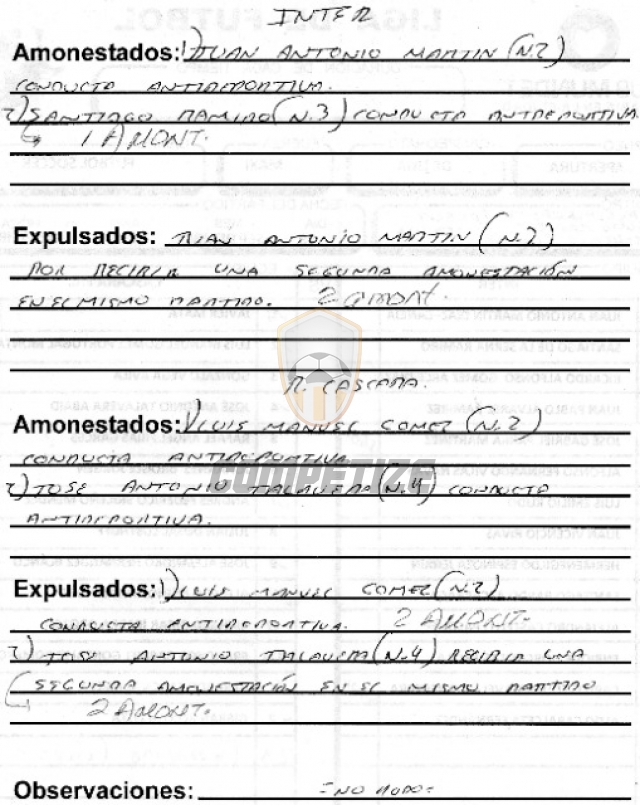 INTER
Amonestados: 1) JUAN ANTONIO MARTIN (N.2)
CONDUCTA ANTIDEPORTIVA.
2) SANTIAGO RAMIRO (N.3) CONDUCTA ANTIDEPORTIVA
1 AMONT.
Expulsados: JUAN ANTONIO MARTIN (N.2)
POR RECIBIR UNA SEGUNDA AMONESTACIÓN
EN EL MISMO PARTIDO. 2 amont.
R. CASCADA.
Amonestados: 1) LUIS MANUEL GOMEZ (N.2)
CONDUCTA ANTIDEPORTIVA
COMPETIZE
2) JOSE ANTONIO TALAVERA (N.4) CONDUCTA
ANTIDEPORTIVA.
Expulsados: 1) LUIS MANUEL GOMEZ (N.2)
CONDUCTA ANTIDEPORTIVA. 2 AMONT.
2) JOSE ANTONIO TALAVERA (N.4) RECIBIR UNA
SEGUNDA AMONESTACIÓN EN EL MISMO PARTIDO
2 AMONT.
Observaciones: = NO HUBO =